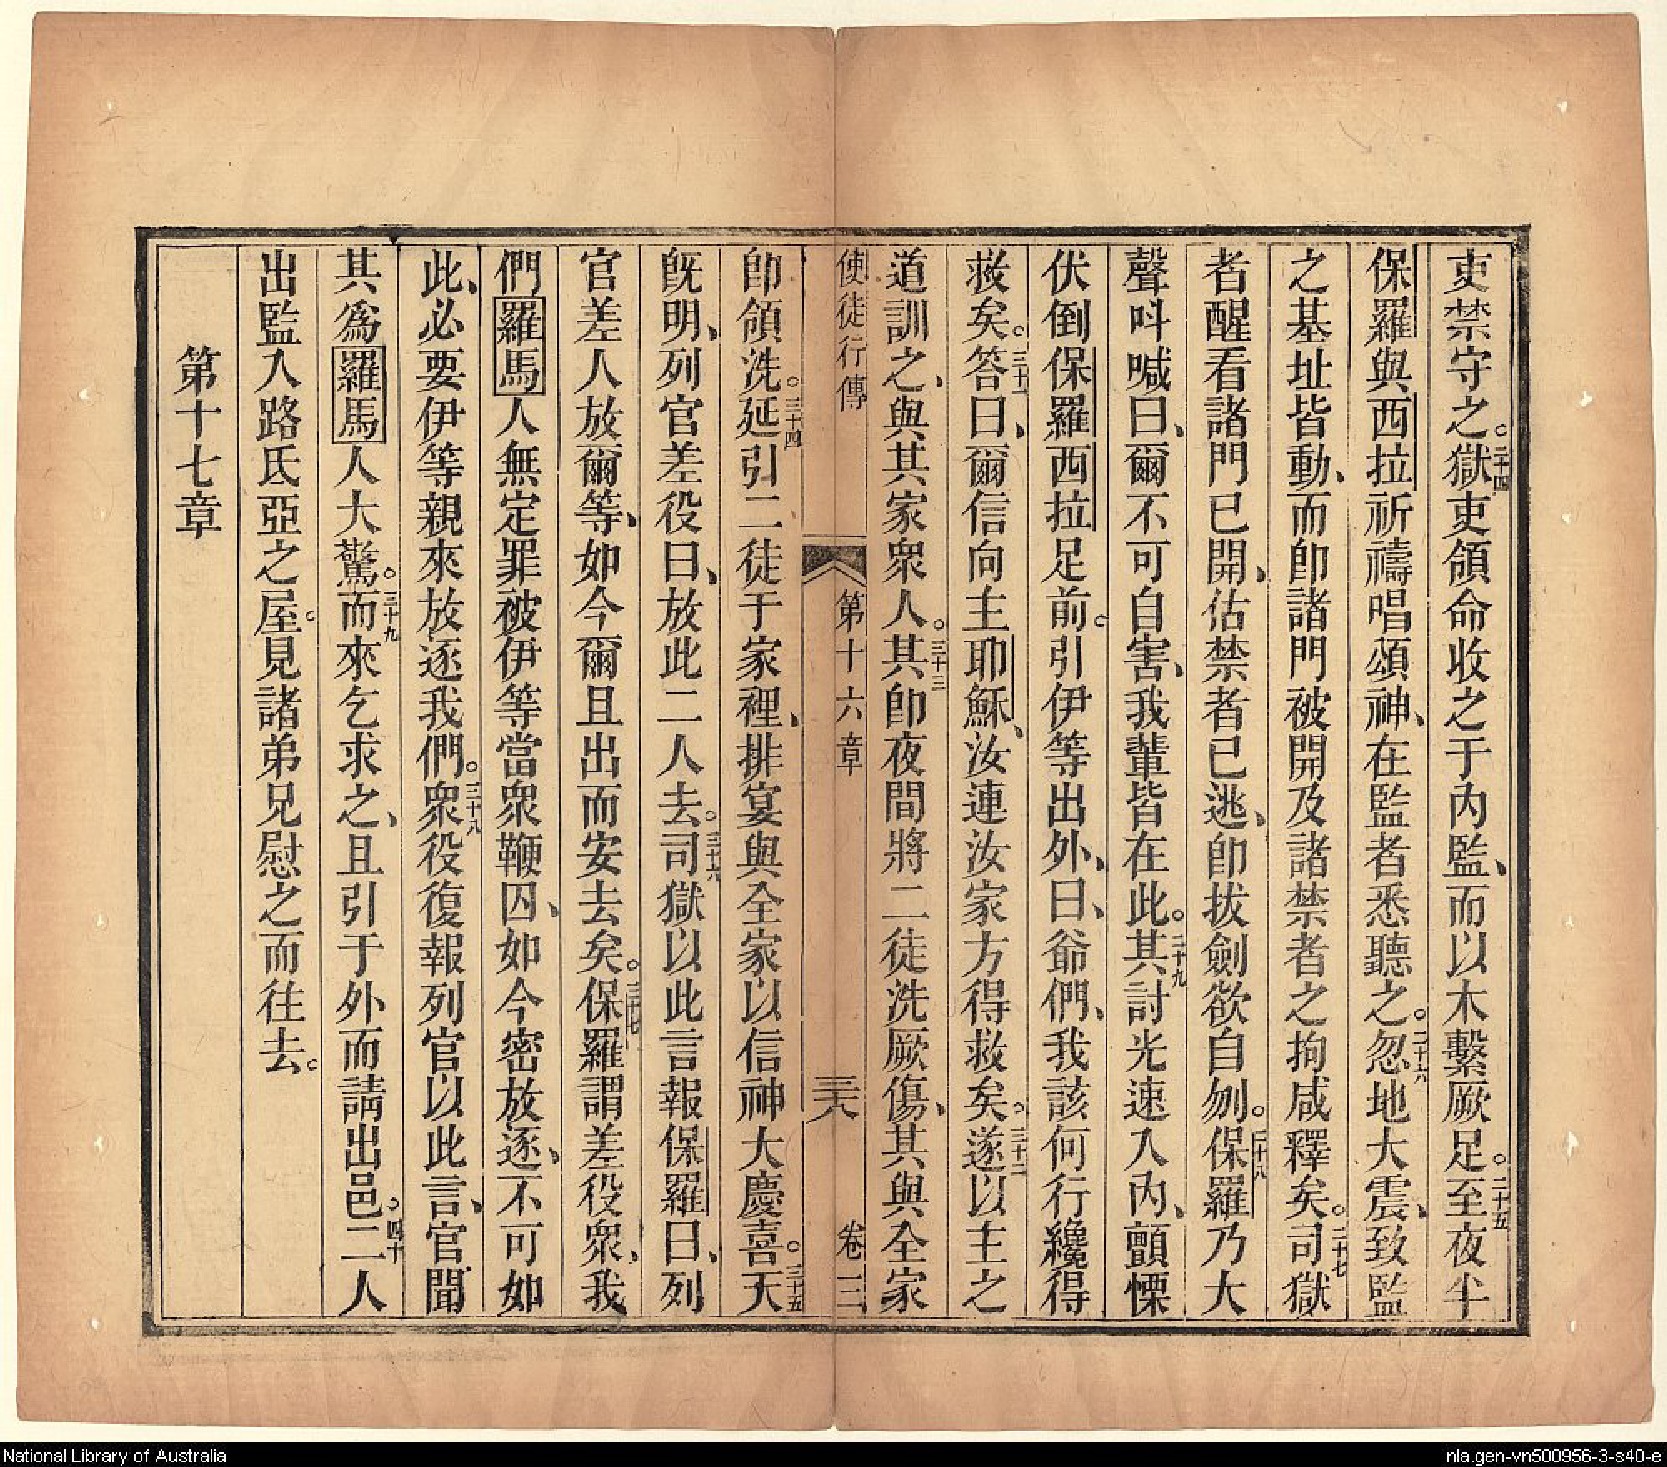 吏禁守之。二十四獄吏領命收之于內監、而以木繫厥足。二十五至夜半
保羅與西拉祈禱唱頌神、在監者悉聽之。二十六忽地大震、致監
之基址皆動、而卽諸門被開及諸禁者之拘咸釋矣。二十七司獄
者醒看諸門已開、估禁者已逃、卽拔劍欲自刎。二十八保羅乃大
聲呌喊曰、爾不可自害、我輩皆在此。二十九其討光速入內、顫慄
伏倒保羅西拉足前。引伊等出外、曰、爺們、我該何行纔得
救矣。三十一答曰、爾信向主耶穌、汝連汝家方得救矣。三十二遂以主之
道訓之、與其家衆人。三十三其卽夜間將二徒洗厥傷、其與全家
使徒行傳 第十六章 三十八 卷三
卽領洗。三十四延引二徒于家裡、排宴與全家以信神大慶喜。三十五天
旣明、列官差役曰、放此二人去。三十六司獄以此言報保羅曰、列
官差人放爾等、如今爾且出而安去矣。三十七保羅謂差役衆、我
們羅馬人無定罪被伊等當衆鞭囚、如今密放逐、不可如
此、必要伊等親來放逐我們。三十八衆役復報列官以此言、官聞
其爲羅馬人大驚。三十九而來乞求之、且引于外而請出邑。四十二人
出監入路氐亞之屋。見諸弟兄慰之而往去。
第十七章
National Library of Australia
nla.gen-vn500956-3-s40-e